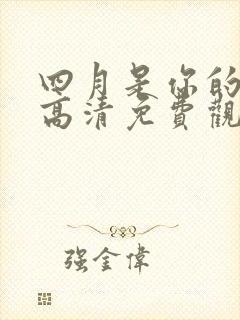 四月是你的
高清免費觀
强金偉